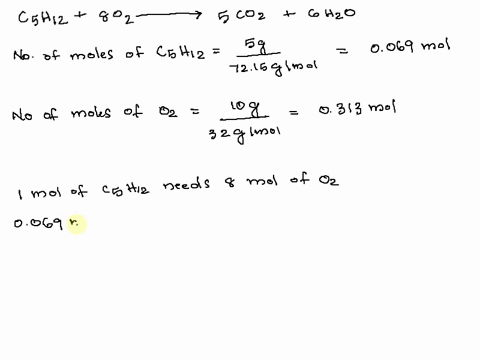 C5H12 + 8O2 ⟶ 5CO2 + 6H2O
No. of moles of C5H12 = 5g / 72.15g/mol = 0.069 mol
No of moles of O2 = 10g / 32g/mol = 0.313 mol
1 mol of C5H12 needs 8 mol of O2
0.069